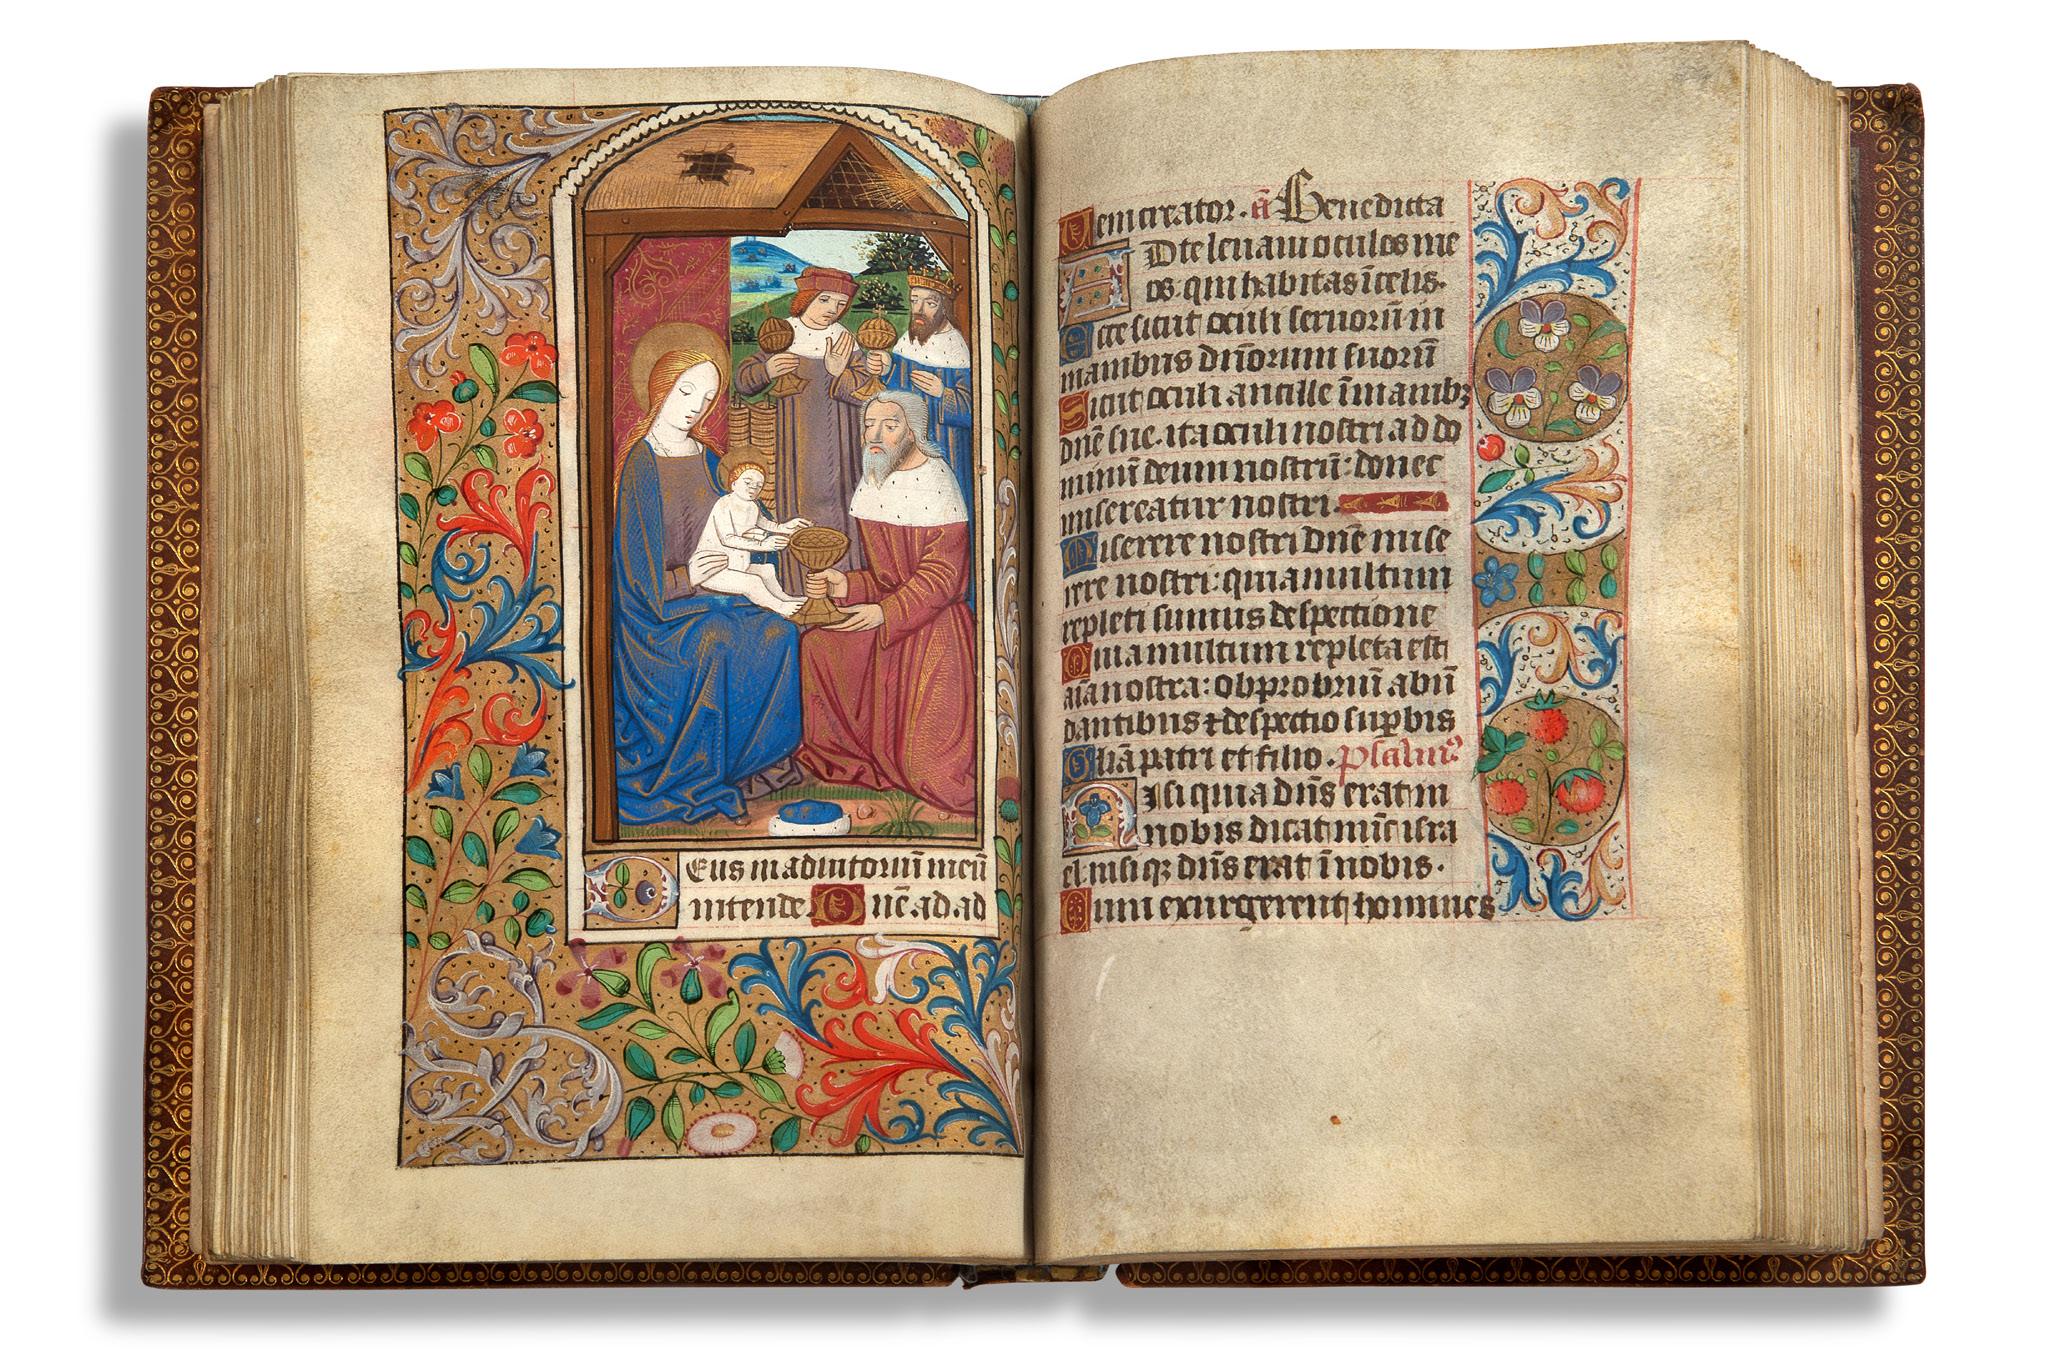 Deus in adiutoriu᷇ meu᷇
intende. Dn̄e ad ad
Ueni creator. an̄ Benedicta
AD te leuaui oculos me
os. qui habitas ī celis.
Ecce sicut oculi seruoru᷇ in
manibus dn̄orum suoru᷇
Sicut oculi ancille ī manibꝫ
dn̄e sue. ita oculi nostri ad do
minu᷇ deum nostru᷇: donec
misereatur nostri.
Miserere nostri dn̄e mise
rere nostri: quia multum
repleti sumus despectione
Quia multum repleta est
aīa nostra: obprobriu᷇ abu᷇
dantibus ⁊ despectio suꝑbis
Gl̄ia patri et filio. psalmꝰ
NIsi quia dn̄s erat in
nobis dicat nūc isra
el: nisi qꝫ dn̄s erat ī nobis.
Cum exurgerent homines